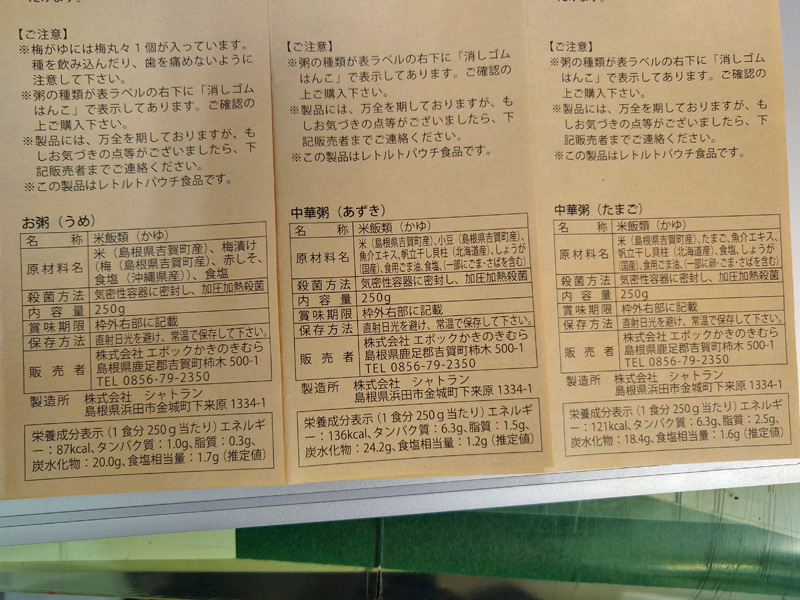 【ご注意】
※梅がゆには梅丸々1個が入っています。
種を飲み込んだり、歯を痛めないように
注意して下さい。
※粥の種類が表ラベルの右下に「消しゴム
はんこ」で表示してあります。ご確認の
上ご購入下さい。
※製品には、万全を期しておりますが、も
しお気づきの点等がございましたら、下
記販売者までご連絡ください。
※この製品はレトルトパウチ食品です。
お粥（うめ）
名 称 米飯類（かゆ）
原材料名 米（島根県吉賀町産）、梅漬け
（梅（島根県吉賀町産）、赤しそ、
食塩（沖縄県産））、食塩
殺菌方法 気密性容器に密封し、加圧加熱殺菌
内 容 量 250g
賞味期限 枠外右部に記載
保存方法 直射日光を避け、常温で保存して下さい。
販 売 者 株式会社 エポックかきのきむら
島根県鹿足郡吉賀町柿木 500-1
TEL 0856-79-2350
製造所 株式会社 シャトラン
島根県浜田市金城町下来原 1334-1
栄養成分表示（1食分250g当たり）エネルギ
ー：87kcal、タンパク質：1.0g、脂質：0.3g、
炭水化物：20.0g、食塩相当量：1.7g（推定値）
【ご注意】
※粥の種類が表ラベルの右下に「消しゴム
はんこ」で表示してあります。ご確認の
上ご購入下さい。
※製品には、万全を期しておりますが、も
しお気づきの点等がございましたら、下
記販売者までご連絡ください。
※この製品はレトルトパウチ食品です。
中華粥（あずき）
名 称 米飯類（かゆ）
原材料名 米（島根県吉賀町産）、小豆（島根県吉賀町産）、
魚介エキス、帆立干し貝柱（北海道産）、しょうが
（国産）、食用ごま油、食塩、（一部にごま・さばを含む）
殺菌方法 気密性容器に密封し、加圧加熱殺菌
内 容 量 250g
賞味期限 枠外右部に記載
保存方法 直射日光を避け、常温で保存して下さい。
販 売 者 株式会社 エポックかきのきむら
島根県鹿足郡吉賀町柿木 500-1
TEL 0856-79-2350
製造所 株式会社 シャトラン
島根県浜田市金城町下来原 1334-1
栄養成分表示（1食分250g当たり）エネルギ
ー：136kcal、タンパク質：6.3g、脂質：1.5g、
炭水化物：24.2g、食塩相当量：1.2g（推定値）
【ご注意】
※粥の種類が表ラベルの右下に「消しゴム
はんこ」で表示してあります。ご確認の
上ご購入下さい。
※製品には、万全を期しておりますが、も
しお気づきの点等がございましたら、下
記販売者までご連絡ください。
※この製品はレトルトパウチ食品です。
中華粥（たまご）
名 称 米飯類（かゆ）
原材料名 米（島根県吉賀町産）、たまご、魚介エキス、
帆立干し貝柱（北海道産）、食塩、しょうが
（国産）、食用ごま油、（一部に卵・ごま・さばを含む）
殺菌方法 気密性容器に密封し、加圧加熱殺菌
内 容 量 250g
賞味期限 枠外右部に記載
保存方法 直射日光を避け、常温で保存して下さい。
販 売 者 株式会社 エポックかきのきむら
島根県鹿足郡吉賀町柿木 500-1
TEL 0856-79-2350
製造所 株式会社 シャトラン
島根県浜田市金城町下来原 1334-1
栄養成分表示（1食分250g当たり）エネルギ
ー：121kcal、タンパク質：6.3g、脂質：2.5g、
炭水化物：18.4g、食塩相当量：1.6g（推定値）